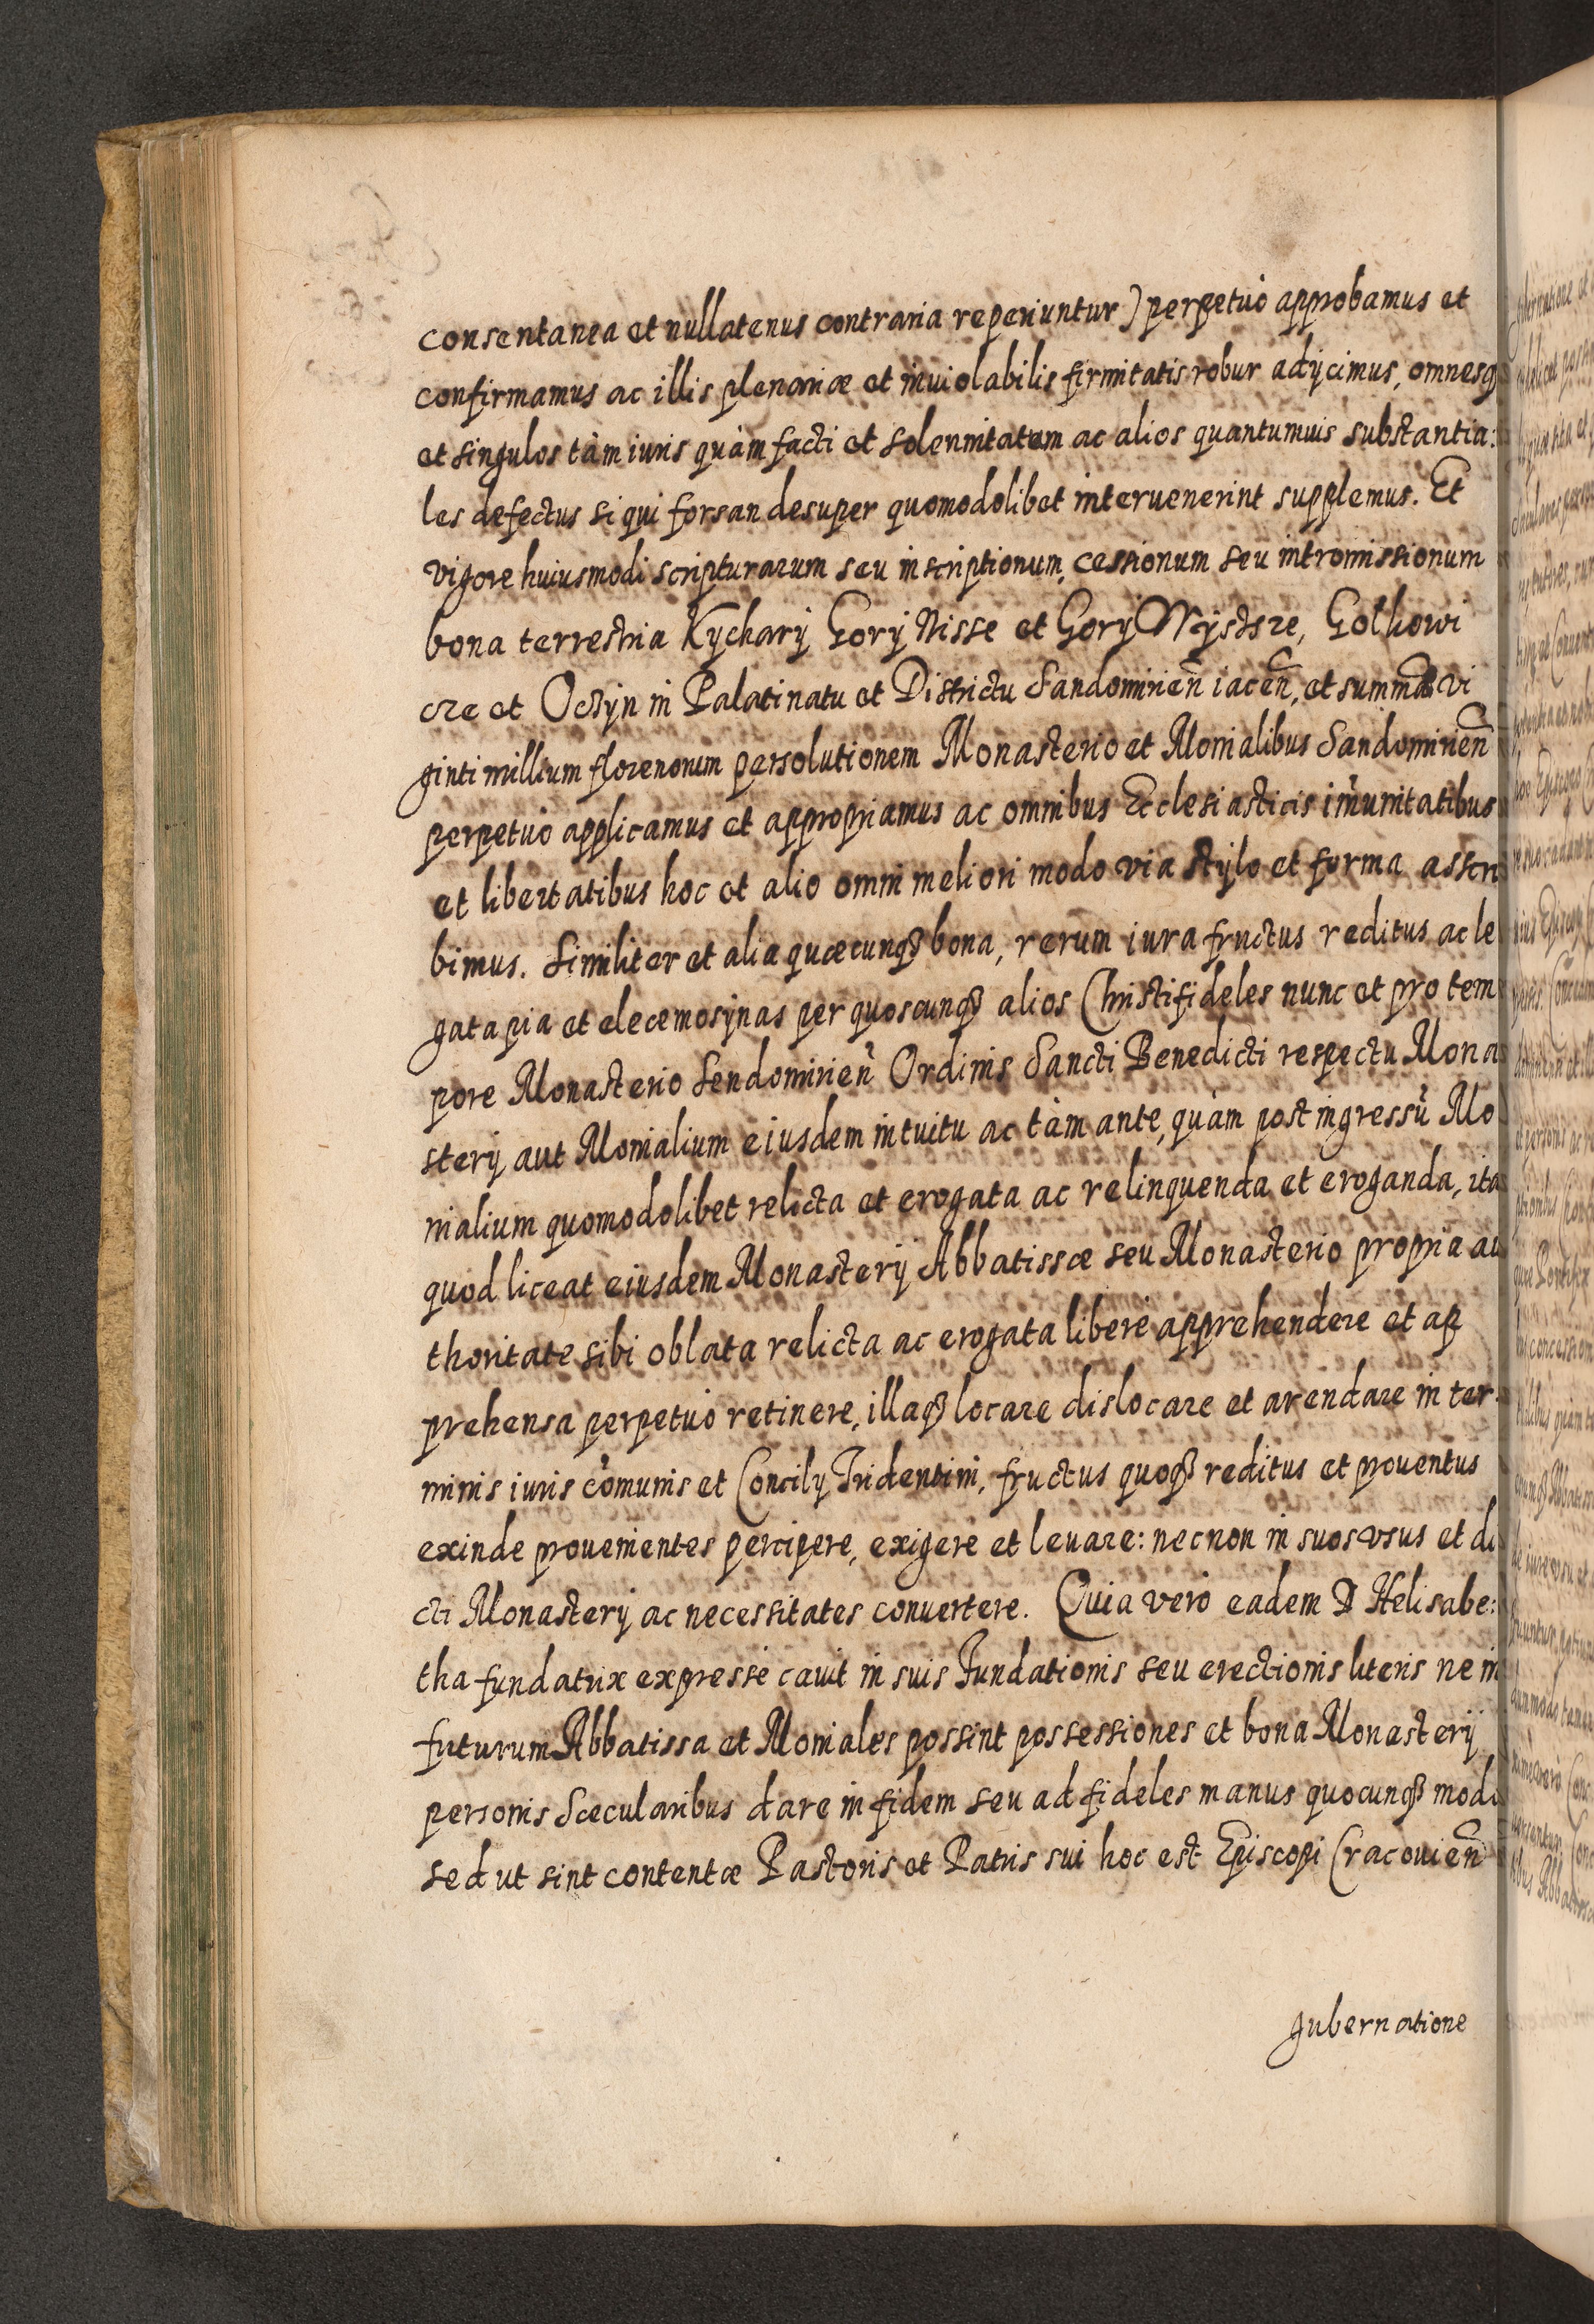 consentanea et nullatenus contraria reperiuntur) perpetuò approbamus et
confirmamus ac illis plenariæ et inuiolabilis firmitatis robur adijcimus, omnesq3
et singulos tàm iuris quàm facti et solennitatem ac alios quantumuis substantia:
les defectus si qui forsan desuper quomodolibet interuenerint supplemus. Et
vigore huiusmodi scripturarum seu inscriptionum, cessionum seu intromissionum
bona terrestria Kÿcharÿ Gorÿ Nisse et Gorÿ Wÿssze, Golkowi
cze et Ocsÿn in Palatinatu et Districtu Sandomirien̄ iacen̄, et summā vi
ginti millium florenorum persolutionem Monasterio et Monialibus Sandomirien̄
perpetuò applicamus et appropriamus ac omnibus Ecclesiasticis im̄unitatibus
et libertatibus hoc et alio omni meliori modo via stÿlo et forma asscri
bimus. Similiter et alia quæcunq3 bona, rerum iura fructus reditus ac le
gata pia et eleemosÿnas per quoscunq3 alios Christifideles nunc et pro tem
pore Monasterio Sendomirien̄ Ordinis Sancti Benedicti respectu Mona
sterÿ aut Monialium eiusdem intuitu ac tàm ante, quàm post ingressū Mo
nialium quomodolibet relicta et erogata ac relinquenda et eroganda, ita
quod liceat eiusdem Monasterÿ Abbatissæ seu Monasterio propria au
thoritate sibi oblata relicta ac erogata liberè apprehendere et ap
prehensa perpetuò retinere, illaq3 locare dislocare et arendare in ter
minis iuris com̄unis et Concilÿ Tridentini, fructus quoq3 reditus et prouentus
exinde prouenientes percipere, exigere et leuare: necnon in suos vsus et di
cti Monasterÿ ac necessitates conuertere. Quia verò eadem D Helisabe:
tha fundatrix expressè cauit in suis Fundationis seu erectionis literis ne in
futurum Abbatissa et Moniales possint possessiones et bona Monasterÿ
personis Sæcularibus dare in fidem seu ad fideles manus quocunq3 modo
sed ut sint contentæ Pastoris et Patris sui hoc est Episcopi Cracouien̄
gubernatione